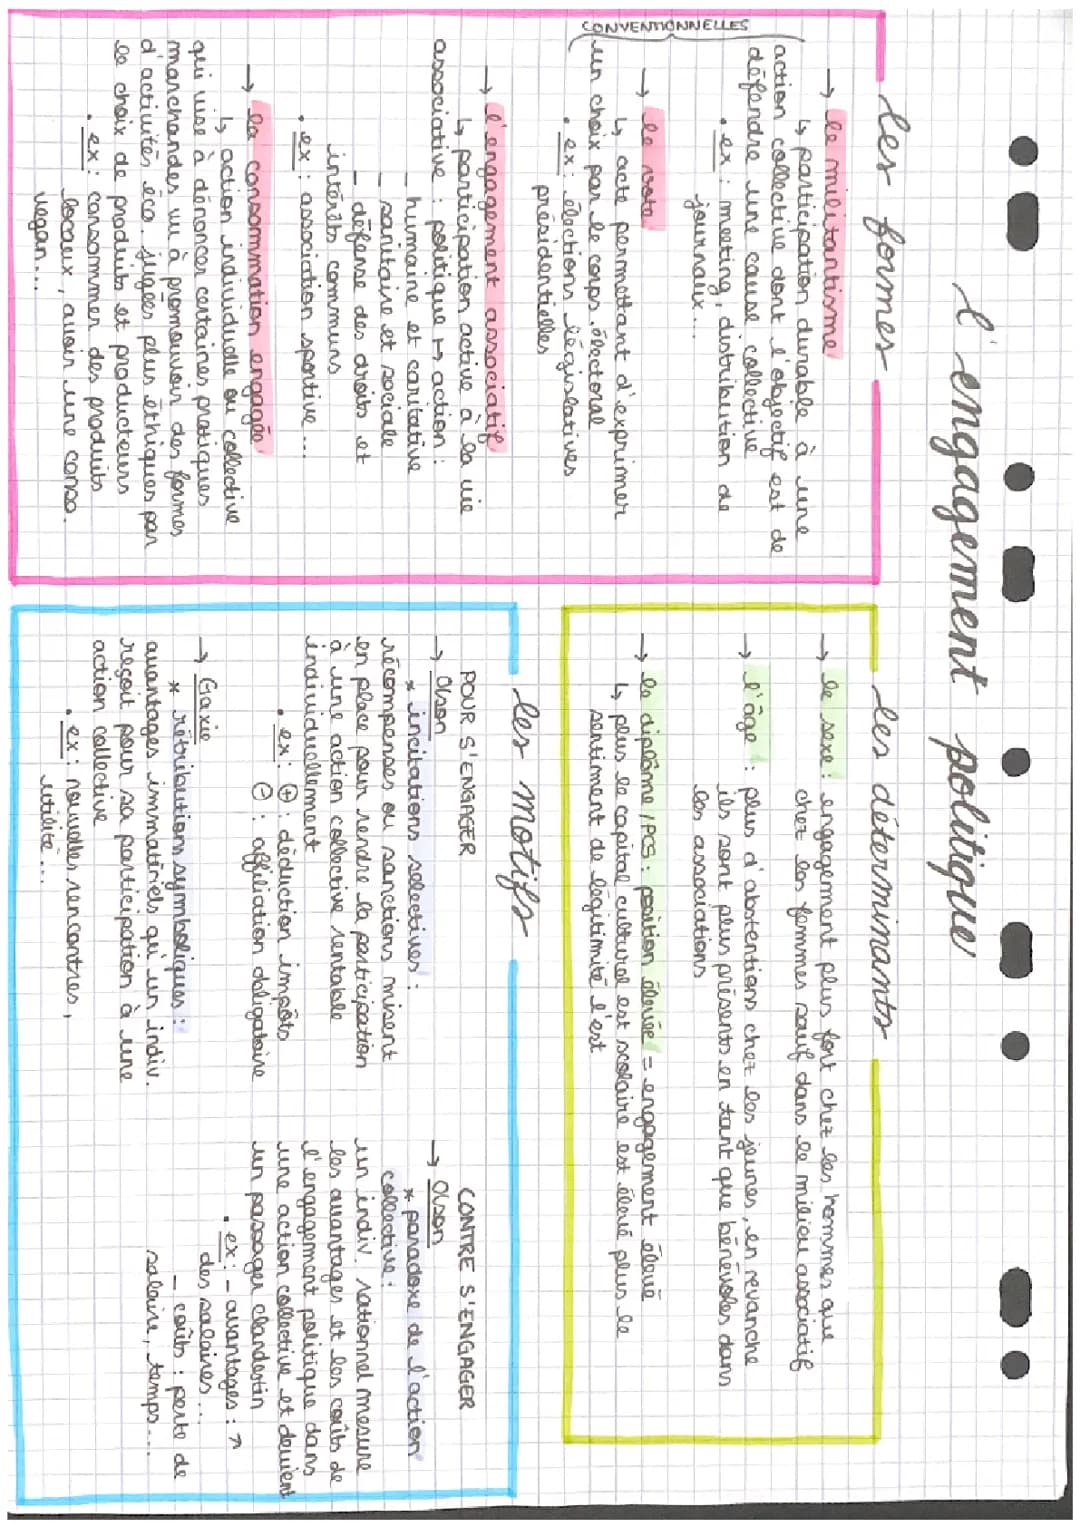 L'engagement politique
les formes
→ le militantisme
↳ participation durable à une
action collective dont l'objectif est de
défendre une cause collective
• ex : meeting, distribution de
journaux...
CONVENTIONNELLES
→ le vote
↳ acte permettant d'exprimer
un choix par le corps électoral
• ex : élections législatives
présidentielles
→ l'engagement associatif
↳ participation active à la vie
associative : politique ↦ action :
_ humaine et caritative
_ sanitaire et sociale
_ défense des droits et
intérêts communs
• ex : association sportive...
→ la consommation engagée
↳ action individuelle ou collective
qui vise à dénoncer certaines pratiques
marchandes vu à promouvoir des formes
d'activités éco. jugées plus éthiques par
le choix de produits et producteurs
• ex : consommer des produits
locaux, avoir une conso.
vegan...
les déterminants
→ le sexe : engagement plus fort chez les hommes que
chez les femmes sauf dans le milieu associatif
→ l'âge : plus d'abstentions chez les jeunes, en revanche
ils sont plus présents en tant que bénévoles dans
les associations
→ le diplôme / PCS : position élevée = engagement élevé
↳ plus le capital culturel est scolaire est élevé plus le
sentiment de légitimité l'est
les motifs
POUR S'ENGAGER
→ Olson
* incitations selectives :
récompenses ou sanctions misent
en place pour rendre la participation
à une action collective rentable
individuellement
• ex : ⊕ : déduction impôts
⊖ : affiliation obligatoire
→ Gaxie
* rétributions symboliques :
avantages immatériels qu'un indiv.
reçoit pour sa participation à une
action collective
• ex : nouvelles rencontres,
utilité...
CONTRE S'ENGAGER
→ Olson
* paradoxe de l'action
collective :
un indiv. rationnel mesure
les avantages et les coûts de
l'engagement politique dans
une action collective et devient
un passager clandestin
• ex : - avantages : ↗
des salaires...
_ coûts : perte de
salaire, temps...